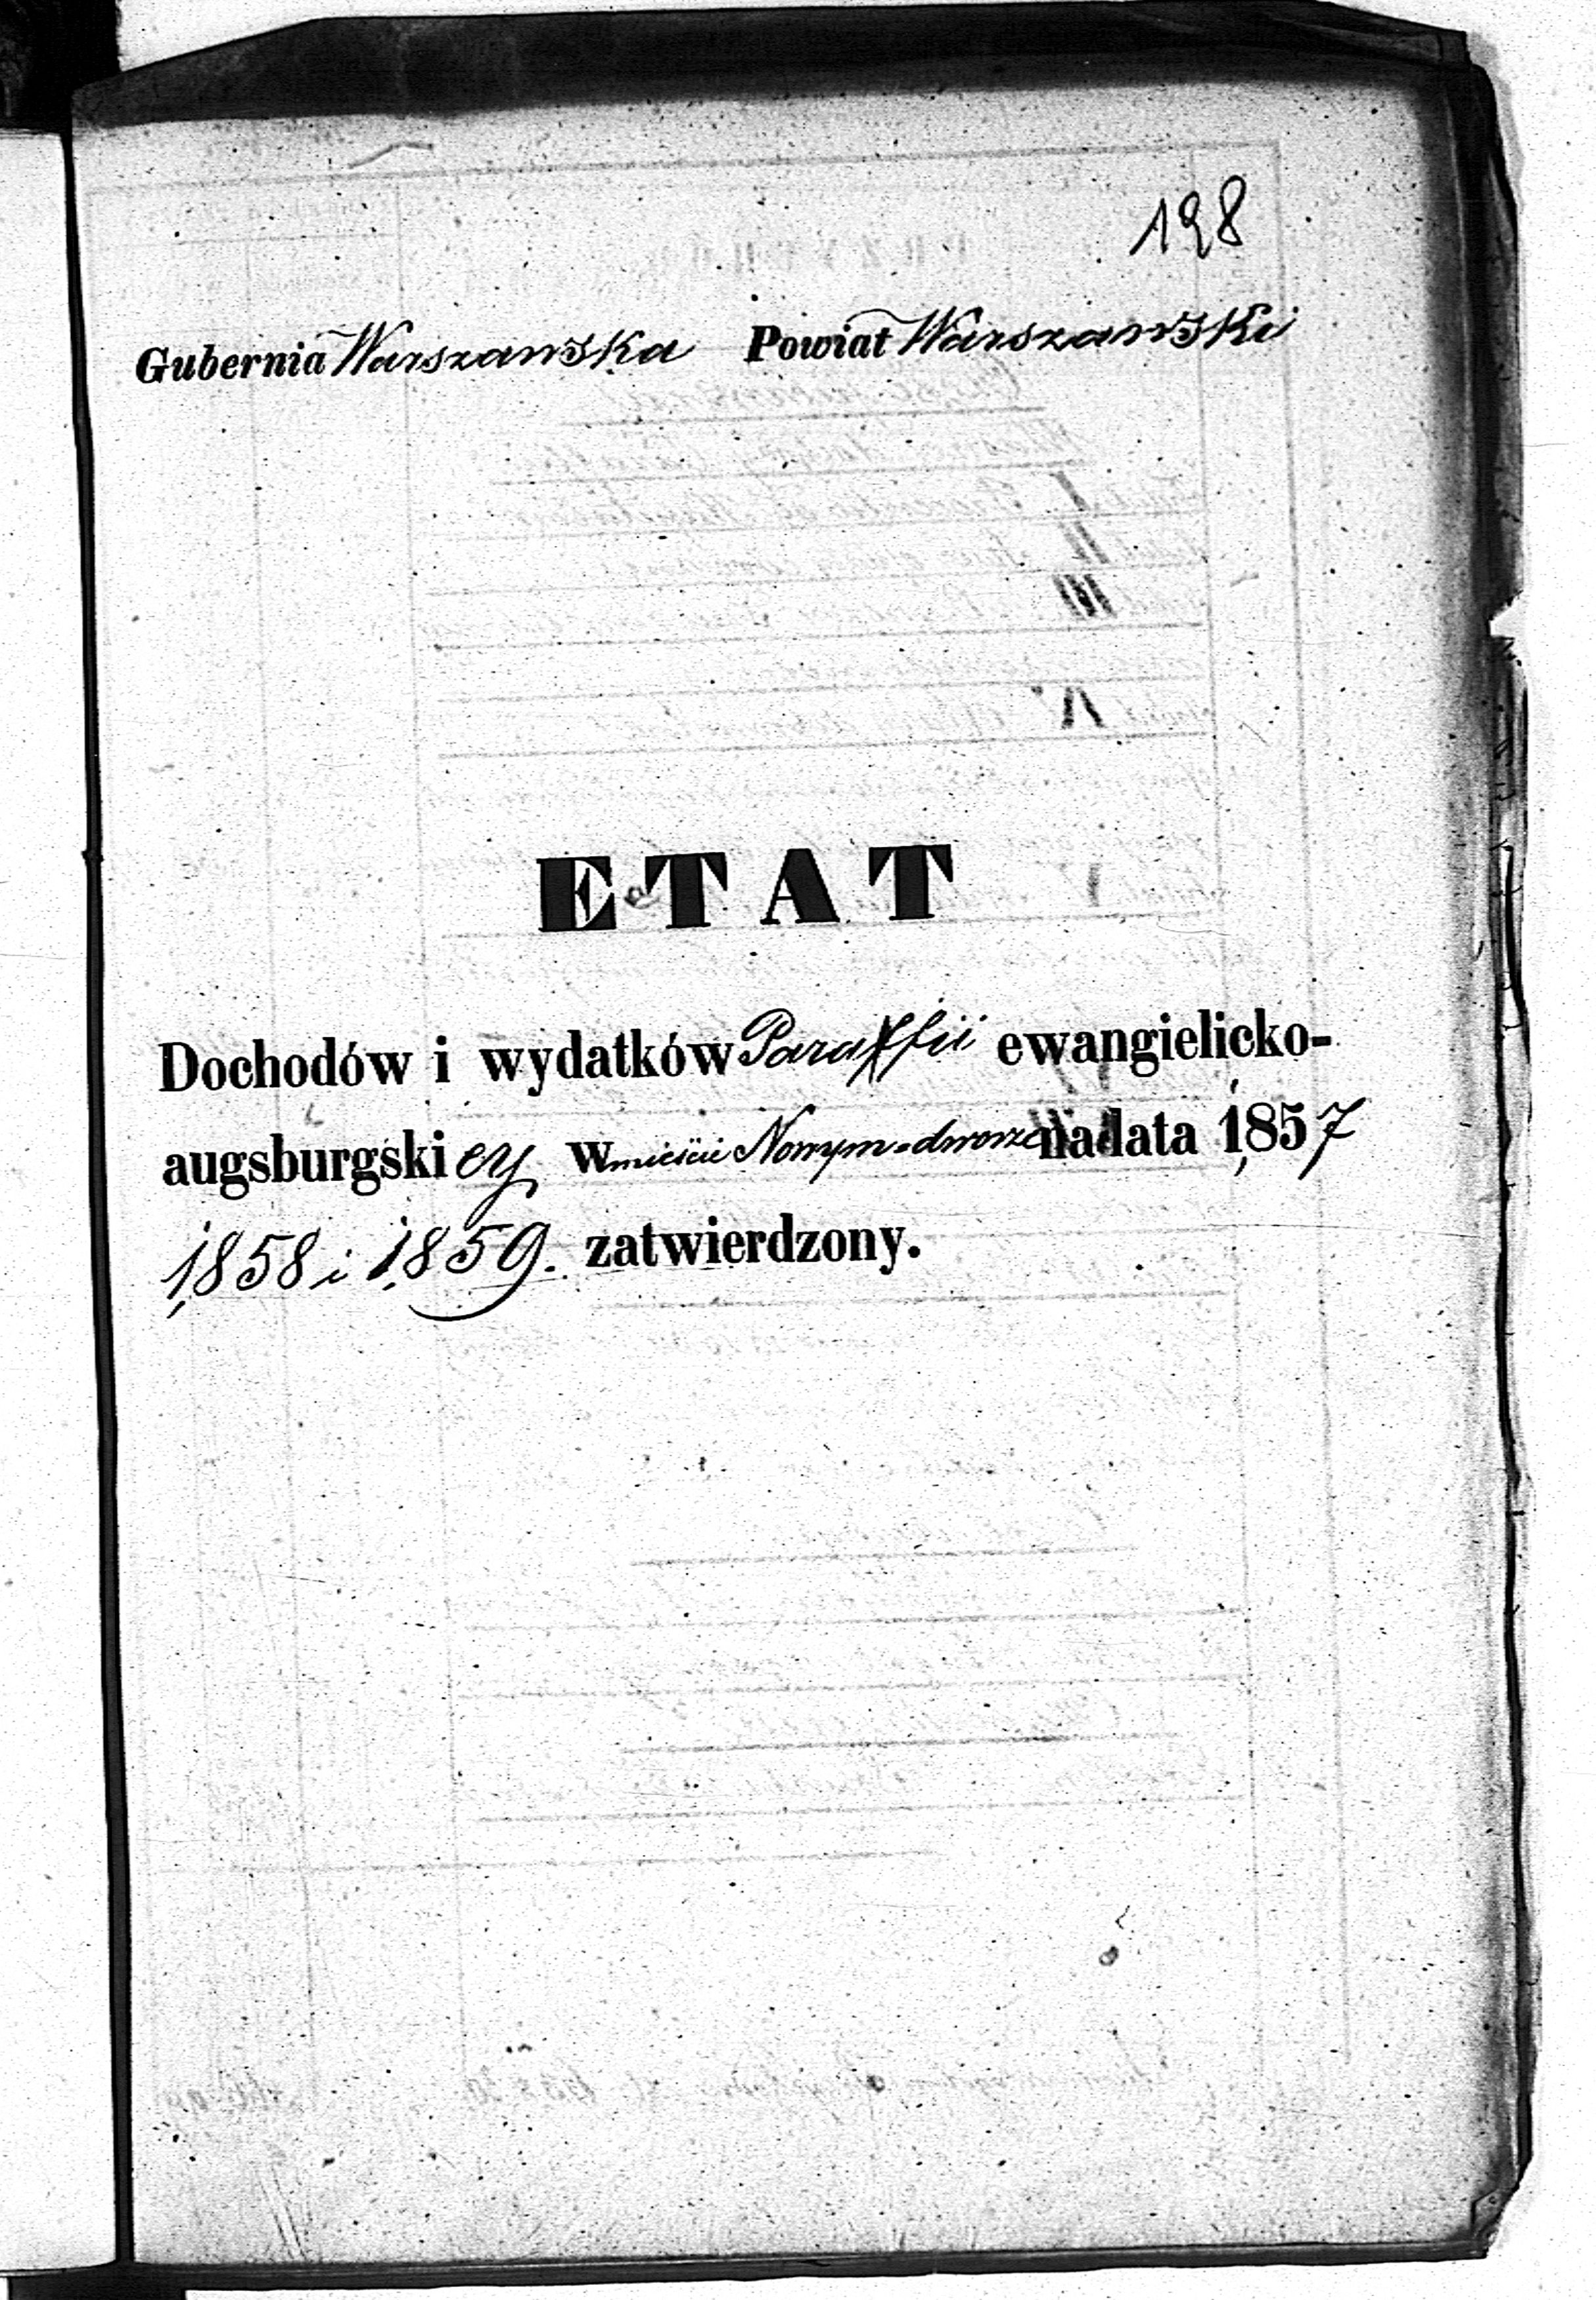 198
Gubernia Warszawska Powiat Warszawski
ETAT
Dochodów i wydatków Paraffii ewangielicko-
augsburgskiey w mieście Nowym-dworze na lata 1857
1858 i 1859. zatwierdzony.